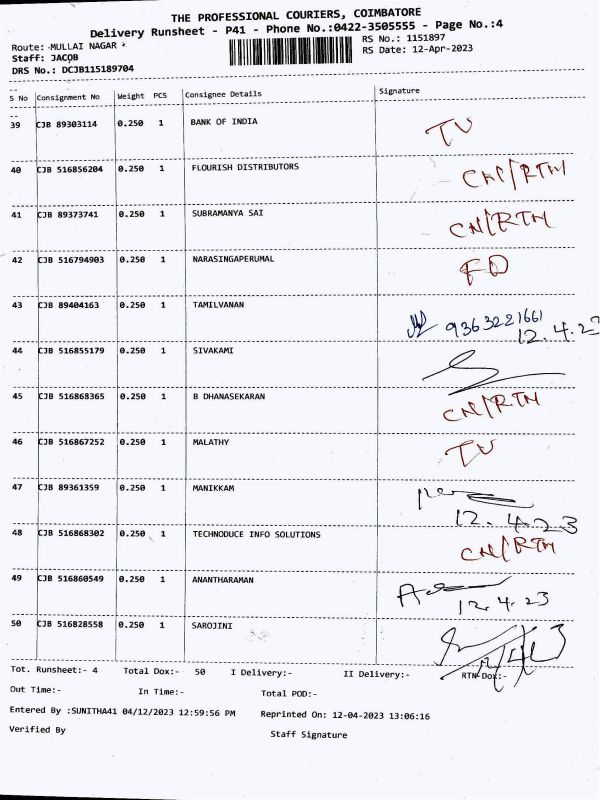 THE PROFESSIONAL COURIERS, COIMBATORE
Delivery Runsheet - P41 - Phone No.:0422-3505555 - Page No.:4
Route: MULLAI NAGAR
RS No.: 1151897
Staff: JACOB
RS Date: 12-Apr-2023
DRS No.: DCJB115189704
S No Consignment No Weight PCS Consignee Details Signature
39 CJB 89303114 0.250 1 BANK OF INDIA
40 CJB 516856204 0.250 1 FLOURISH DISTRIBUTORS CN/RTN
41 CJB 89373741 0.250 1 SUBRAMANYA SAI CN/RTN
42 CJB 516794903 0.250 1 NARASINGAPERUMAL FD
43 CJB 89404163 0.250 1 TAMILVANAN 9363221661
12.4.23
44 CJB 516855179 0.250 1 SIVAKAMI
45 CJB 516868365 0.250 1 B DHANASEKARAN CN/RTN
46 CJB 516867252 0.250 1 MALATHY
47 CJB 89361359 0.250 1 MANIKKAM
12.4.23
48 CJB 516868302 0.250 1 TECHNODUCE INFO SOLUTIONS CN/RTN
49 CJB 516860549 0.250 1 ANANTHARAMAN
12.4.23
50 CJB 516828558 0.250 1 SAROJINI
Tot. Runsheet:- 4 Total Dox:- 50 I Delivery:- II Delivery:- RTN-Dox:-
Out Time:- In Time:- Total POD:-
Entered By :SUNITHA41 04/12/2023 12:59:56 PM Reprinted On: 12-04-2023 13:06:16
Verified By Staff Signature